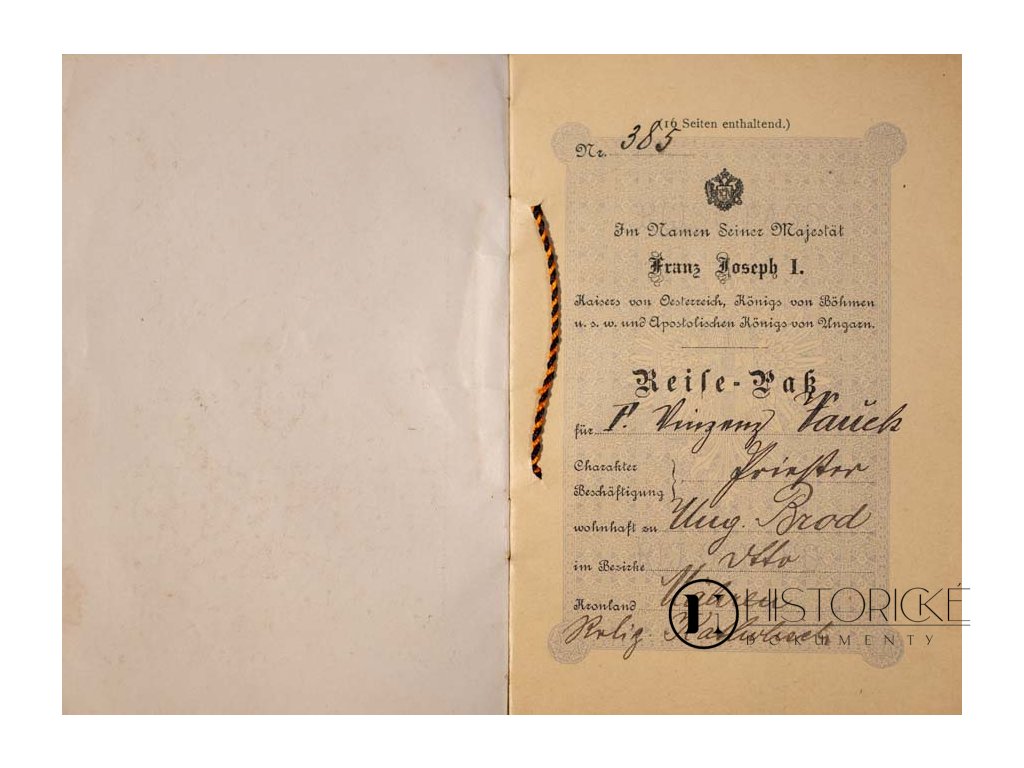 (16 Seiten enthaltend.)
Nr. 385
Im Namen Seiner Majestät
Franz Joseph I.
Kaisers von Oesterreich, Königs von Böhmen
u. s. w. und Apostolischen Königs von Ungarn.
Reise-Paß
für P. Vinzenz
Charakter
Beschäftigung } Priester
wohnhaft zu Ung. Brod
im Bezirke dtto
Kronland Mähren
Relig. Katholisch
HISTORICKÉ
DOKUMENTY